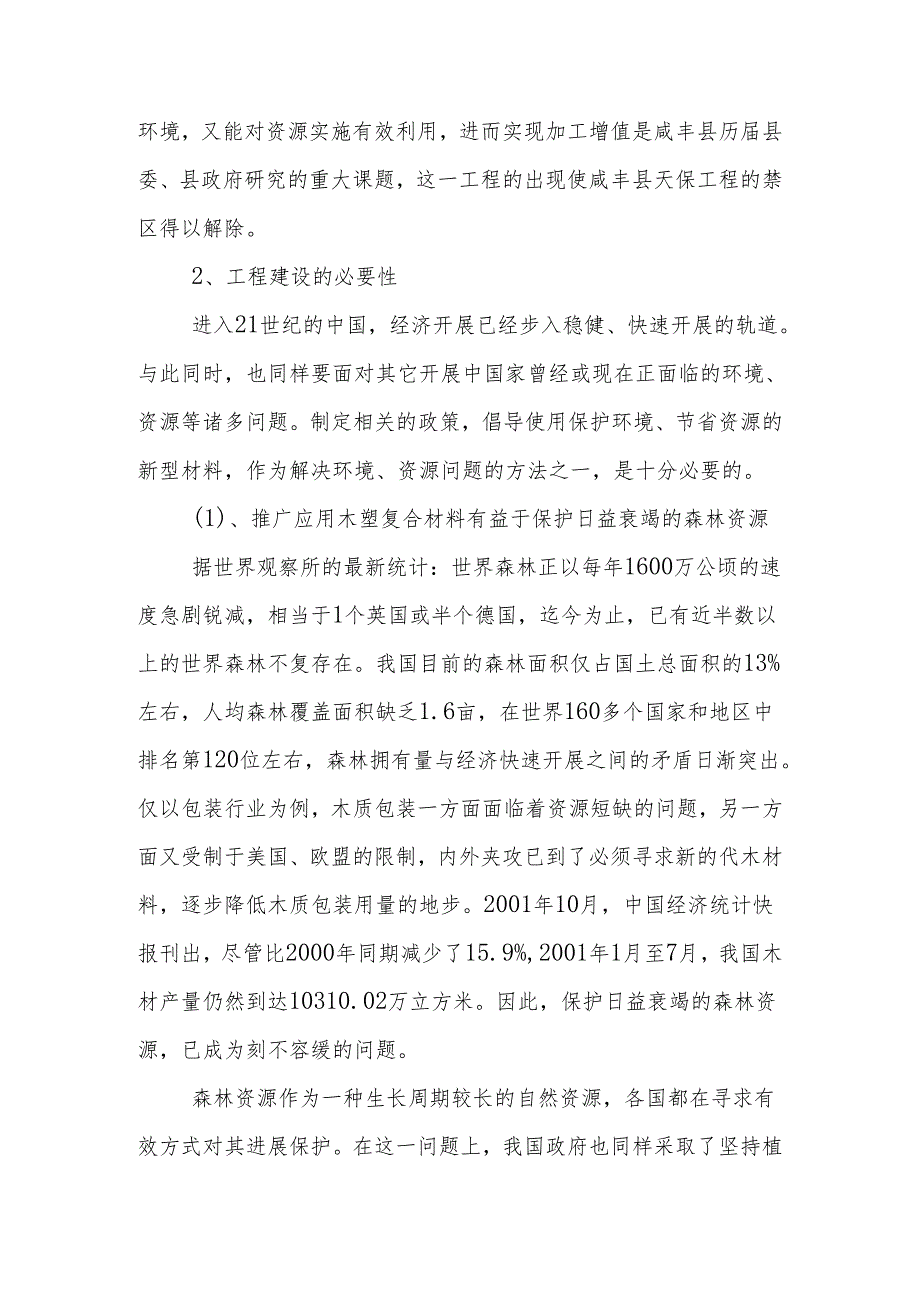 环境，又能对资源实施有效利用，进而实现加工增值是咸丰县历届县
委、县政府研究的重大课题，这一工程的出现使咸丰县天保工程的禁
区得以解除。
2、工程建设的必要性
进入21世纪的中国，经济开展已经步入稳健、快速开展的轨道。
与此同时，也同样要面对其它开展中国家曾经或现在正面临的环境、
资源等诸多问题。制定相关的政策，倡导使用保护环境、节省资源的
新型材料，作为解决环境、资源问题的方法之一，是十分必要的。
(1)、推广应用木塑复合材料有益于保护日益衰竭的森林资源
据世界观察所的最新统计：世界森林正以每年1600万公顷的速
度急剧锐减，相当于1个英国或半个德国，迄今为止，已有近半数以
上的世界森林不复存在。我国目前的森林面积仅占国土总面积的13%
左右，人均森林覆盖面积缺乏1.6亩，在世界160多个国家和地区中
排名第120位左右，森林拥有量与经济快速开展之间的矛盾日渐突出。
仅以包装行业为例，木质包装一方面面临着资源短缺的问题，另一方
面又受制于美国、欧盟的限制，内外夹攻已到了必须寻求新的代木材
料，逐步降低木质包装用量的地步。2001年10月，中国经济统计快
报刊出，尽管比2000年同期减少了15.9%,2001年1月至7月，我国木
材产量仍然到达10310.02万立方米。因此，保护日益衰竭的森林资
源，已成为刻不容缓的问题。
森林资源作为一种生长周期较长的自然资源，各国都在寻求有
效方式对其进展保护。在这一问题上，我国政府也同样采取了坚持植